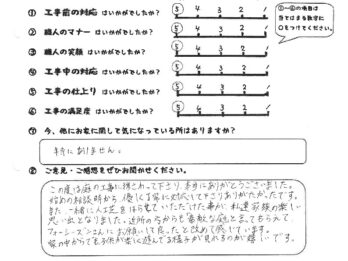 ① 工事前の対応 はいかがでしたか? 5 4 3 2 1
② 職人のマナー はいかがでしたか? 5 4 3 2 1
③ 職人の笑顔 はいかがでしたか? 5 4 3 2 1
④ 工事中の対応 はいかがでしたか? 5 4 3 2 1
⑤ 工事の仕上り はいかがでしたか? 5 4 3 2 1
⑥ 工事の満足度 はいかがでしたか? 5 4 3 2 1
①~⑥の項目は
当てはまる数字に
○をつけてください。
⑦ 今、他にお宅に関して気になっている所はありますか?
特にありません。
⑧ ご意見・ご感想をぜひお聞かせください。
この度は庭の工事に携さわって下さり、本当にありがとうございました。
初めの相談時から 優しく丁寧に対応して下さりありがたかったです。
また 一緒に人工芝を はらせていただけた事が 私達家族の楽しい
思い出となりました。近所の方からも素敵な庭だと言ってもらえて、
フォーシーズンさんに お願いして良かったと改めて感じています。
家の中からでも子供が楽しく遊んでる様子が見れるのが 嬉しいです。